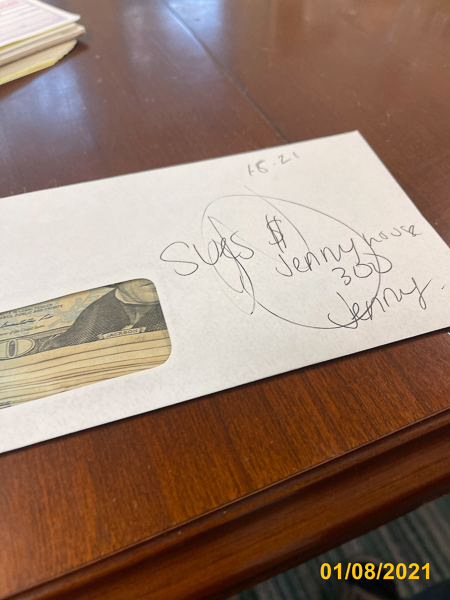 1.8.21
Subs $
Jenny house
300
Jenny.
JACKSON
01/08/2021